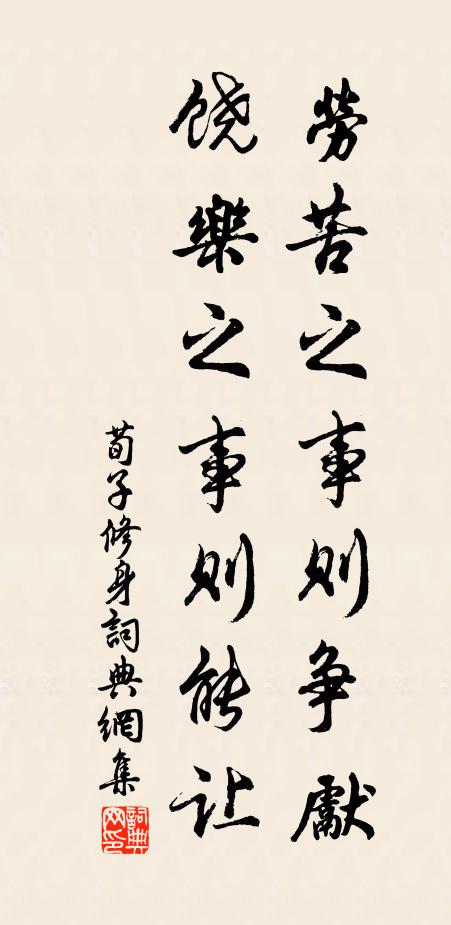 勞苦之事则争獻
饶樂之事则能让
荀子修身詞典網集
詞典网印